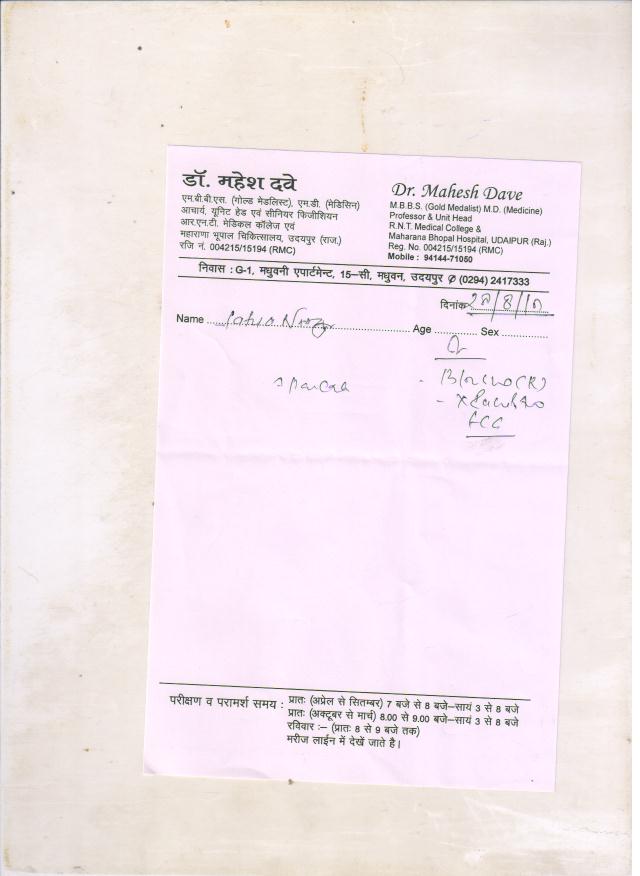 डॉ. महेश दवे
एम.बी.बी.एस. (गोल्ड मेडलिस्ट), एम.डी. (मेडिसिन)
आचार्य, यूनिट हेड एवं सीनियर फिजीशियन
आर.एन.टी. मेडिकल कॉलेज एवं
महाराणा भूपाल चिकित्सालय, उदयपुर (राज.)
रजि नं. 004215/15194 (RMC)
Dr. Mahesh Dave
M.B.B.S. (Gold Medalist) M.D. (Medicine)
Professor & Unit Head
R.N.T. Medical College &
Maharana Bhopal Hospital, UDAIPUR (Raj.)
Reg. No. 004215/15194 (RMC)
Mobile : 94144-71050
निवास : G-1, मधुवनी एपार्टमेन्ट, 15-सी, मधुवन, उदयपुर ✆ (0294) 2417333
दिनांक
Name Age Sex
परीक्षण व परामर्श समय : प्रातः (अप्रेल से सितम्बर) 7 बजे से 8 बजे-सायं 3 से 8 बजे
प्रातः (अक्टूबर से मार्च) 8.00 से 9.00 बजे-सायं 3 से 8 बजे
रविवार :– (प्रातः 8 से 9 बजे तक)
मरीज लाईन में देखें जाते है।